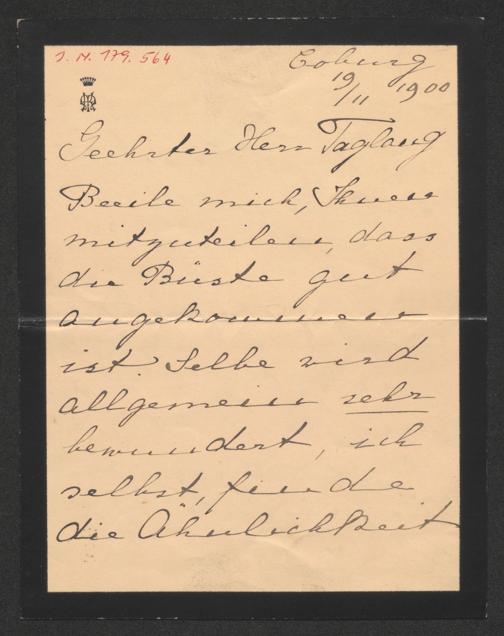 J. N. 179.564
Coburg
19/11 1900
Geehrter Herr Taglang
Beeile mich, Ihnen
mitzuteilen, dass
die Büste gut
angekommen
ist. Selbe wird
allgemein sehr
bewundert, ich
selbst, finde
die Ähnlichkeit